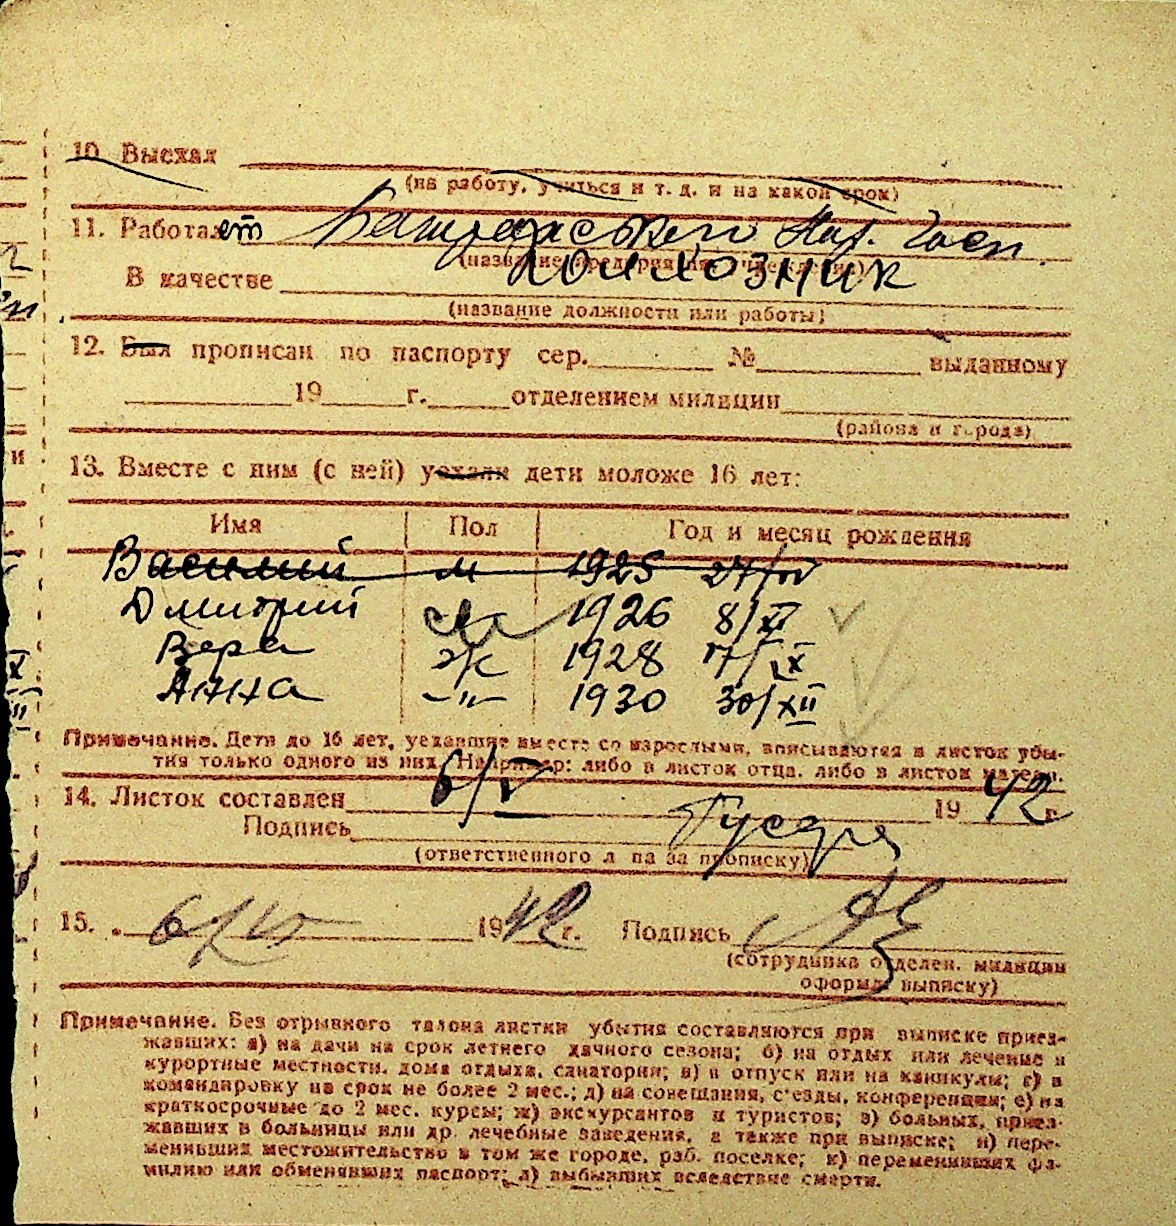 10. Выехал
(на работу, учиться и т. д. и на какой срок)
11. Работает Нар. Госп.
В качестве
(название должности или работы)
12. Был прописан по паспорту сер. № выданному
19 г. отделением милиции
(района и города)
13. Вместе с ним (с ней) уехали дети моложе 16 лет:
Имя Пол Год и месяц рождения
Василий м 1925 27/IV
Дмитрий м 1926 8/XI
Вера ж 1928 17/IX
Анна -"- 1930 30/XII
Примечание. Дети до 16 лет, уехавшие вместе со взрослыми, вписываются в листок убы-
тия только одного из них. Например: либо в листок отца, либо в листок матери.
14. Листок составлен 6/V 1942 г.
Подпись
(ответственного л па за прописку)
15. 6/V 1942 г. Подпись
(сотрудника отделен. милиции
оформл. выписку)
Примечание. Без отрывного талона листки убытия составляются при выписке приез-
жавших: а) на дачи на срок летнего дачного сезона; б) на отдых или лечение в
курортные местности, дома отдыха, санатории; в) в отпуск или на каникулы; г) в
командировку на срок не более 2 мес.; д) на совещания, съезды, конференции; е) на
краткосрочные до 2 мес. курсы; ж) экскурсантов и туристов; з) больных, приез-
жавших в больницы или др. лечебные заведения, а также при выписке; и) пере-
менивших местожительство в том же городе, раб. поселке; к) переменивших фа-
милию или обменявших паспорт; л) выбывших вследствие смерти.